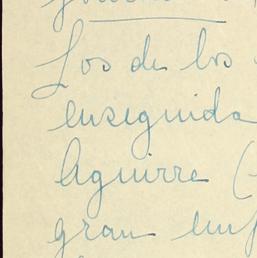 Los de los
enseguida
Aguirre (
gran